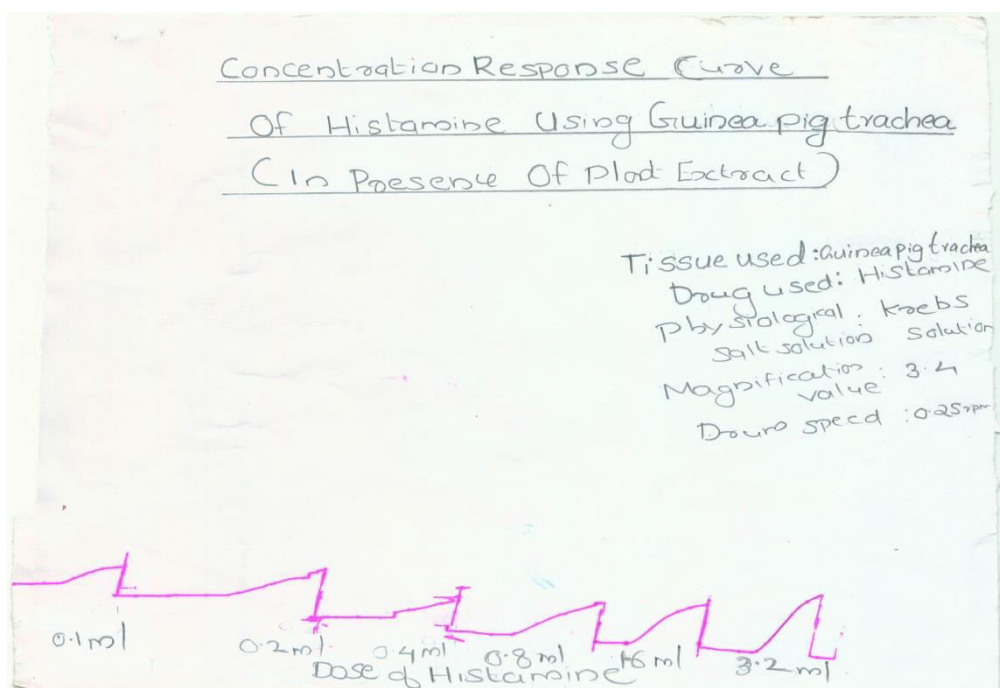 Concentration Response Curve
Of Histamine Using Guinea pig trachea
(In Presence Of Plant Extract)
Tissue used : Guinea pig trachea
Drug used : Histamine
Physiological : Krebs
Salt solution Solution
Magnification : 3.4
value
Drum speed : 0.25rpm
0.1ml 0.2ml 0.4ml 0.8ml 1.6ml 3.2ml
Dose of Histamine